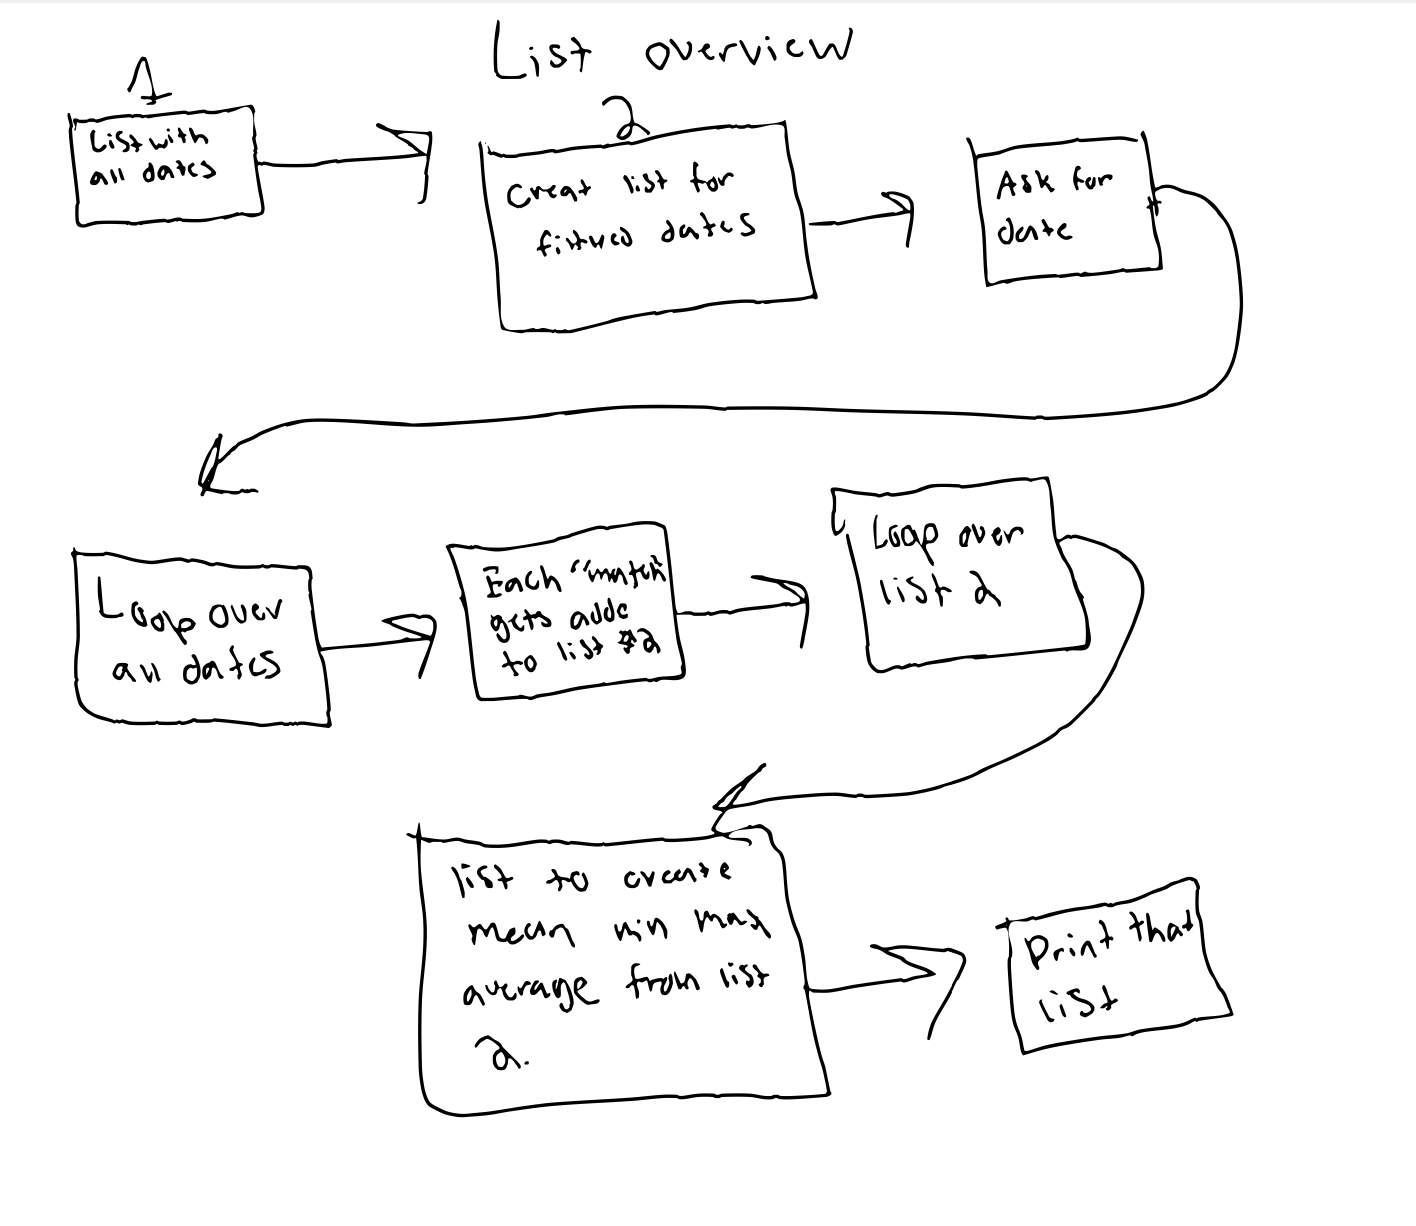 List overview
1
List with
all dates
2
Creat list for
dates
Ask for
date
Loop over
all dates
Each "match"
gets adde
to list #2
Loop over
list 2
list to create
mean min max
average from list
2.
Print that
list